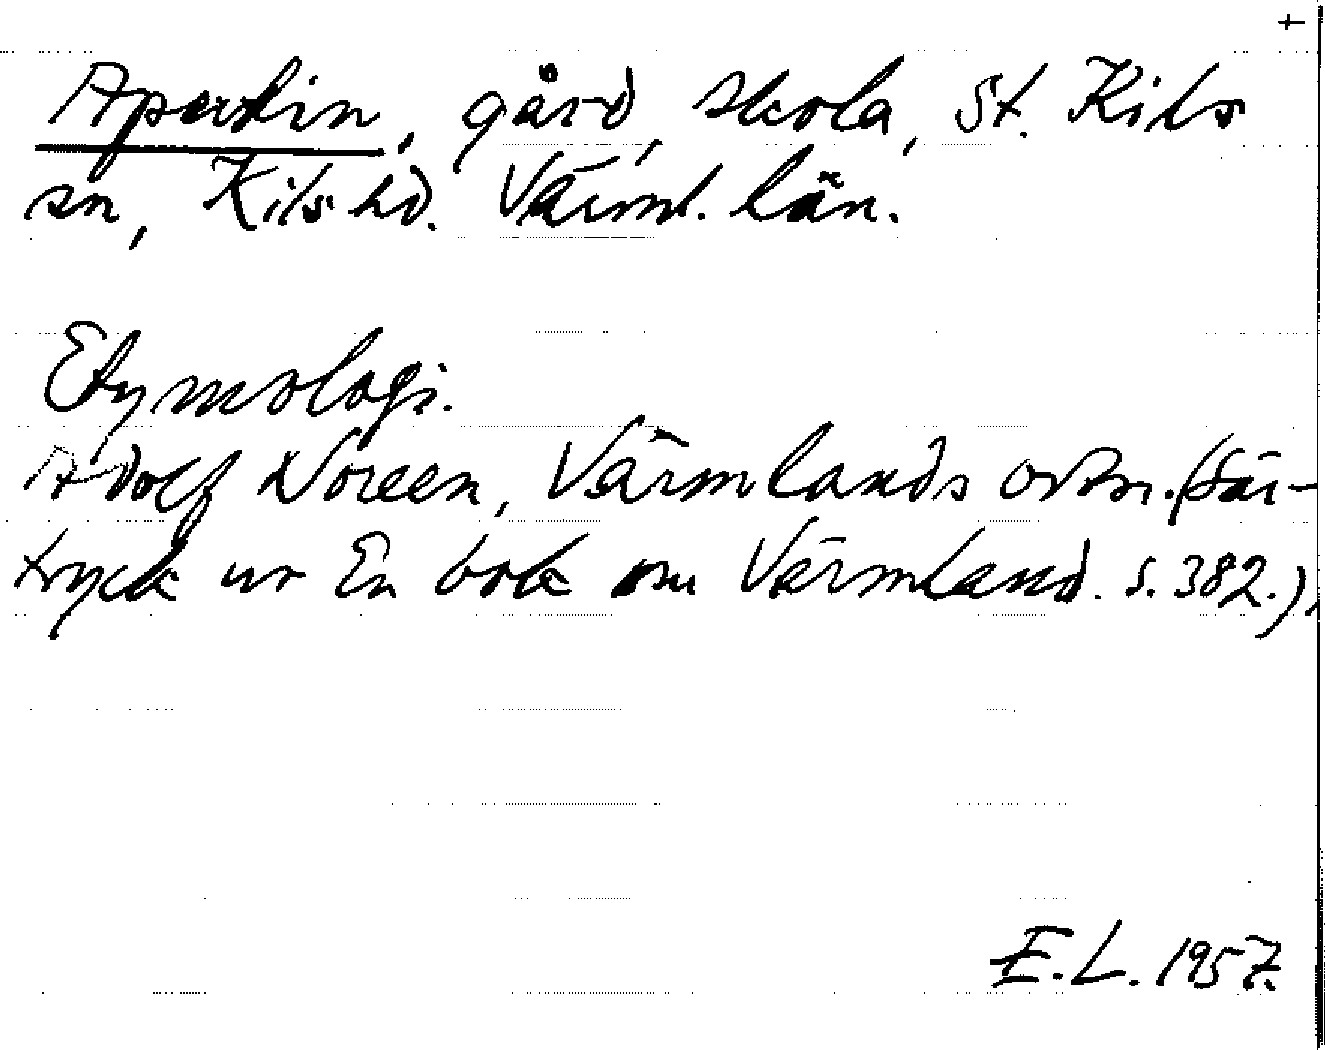 +
Apertin, gård, skola, St. Kils
sn, Kils hd. Värml. län.
Etymologi.
Adolf Noreen, Värmlands ortn. (Sär-
tryck ur En bok om Värmland. s. 382.),
E.L. 1957.